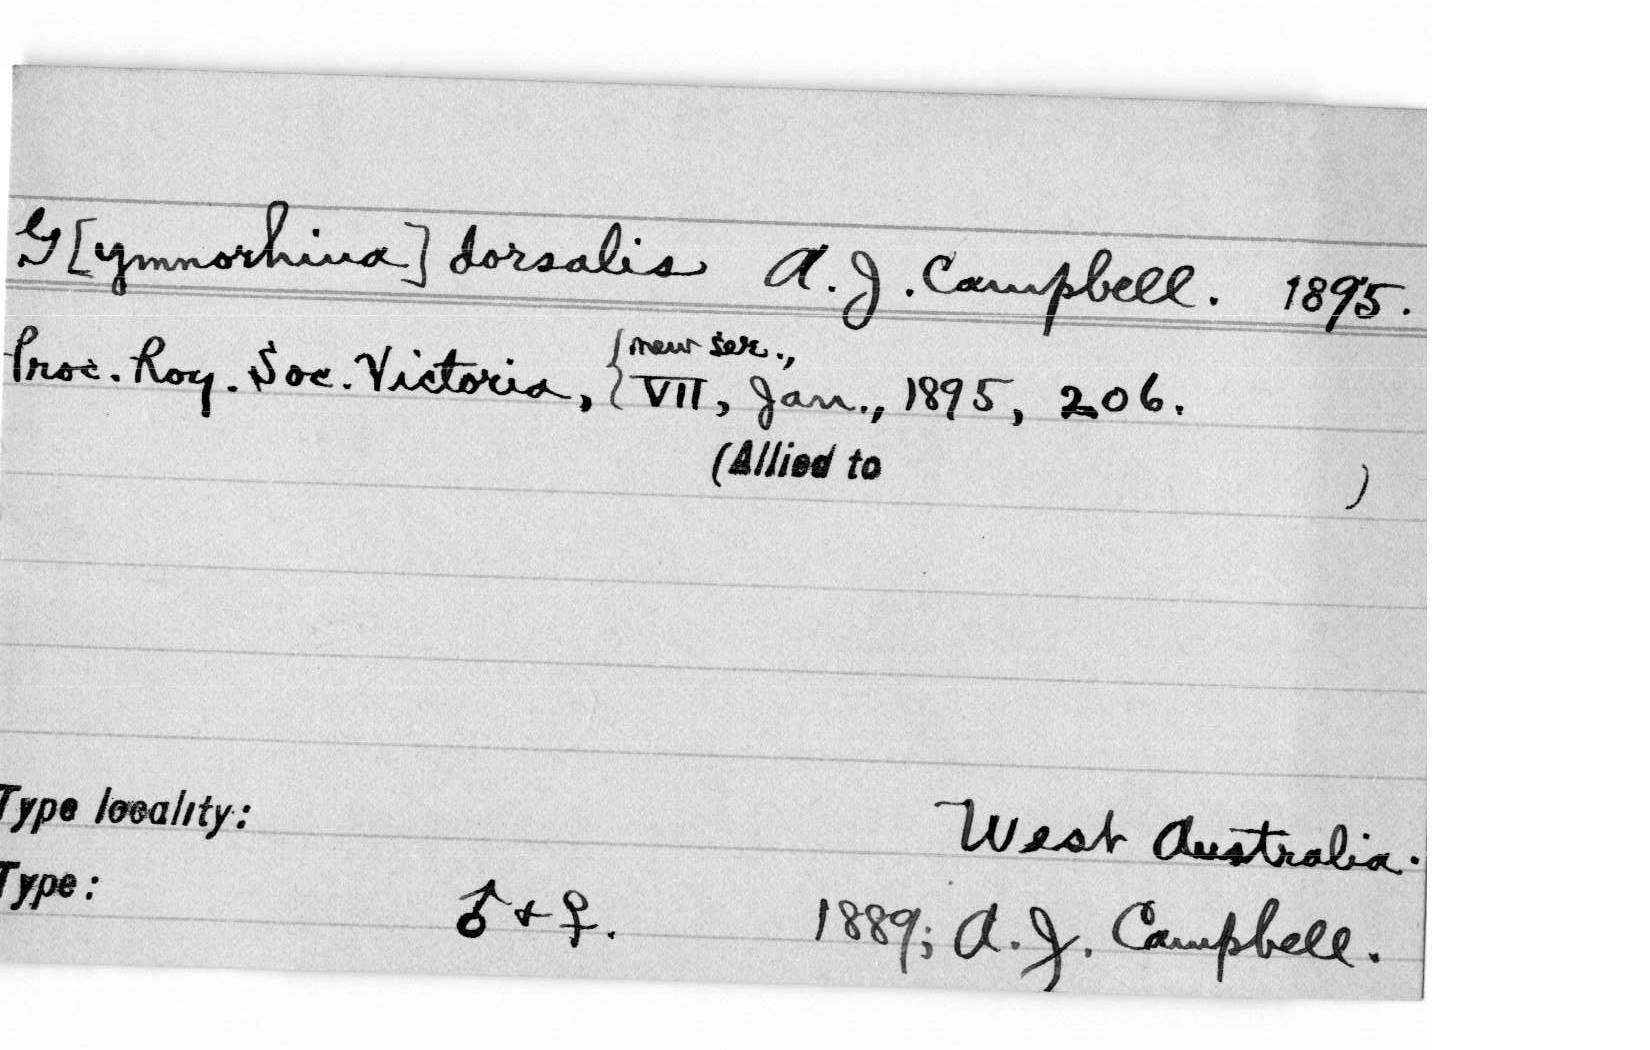 G[ymnorhina] dorsalis A.J. Campbell. 1895.
Proc. Roy. Soc. Victoria, { new ser.,
VII, Jan., 1895, 206.
(Allied to )
Type locality: West Australia.
Type: ♂ + ♀. 1889; A.J. Campbell.